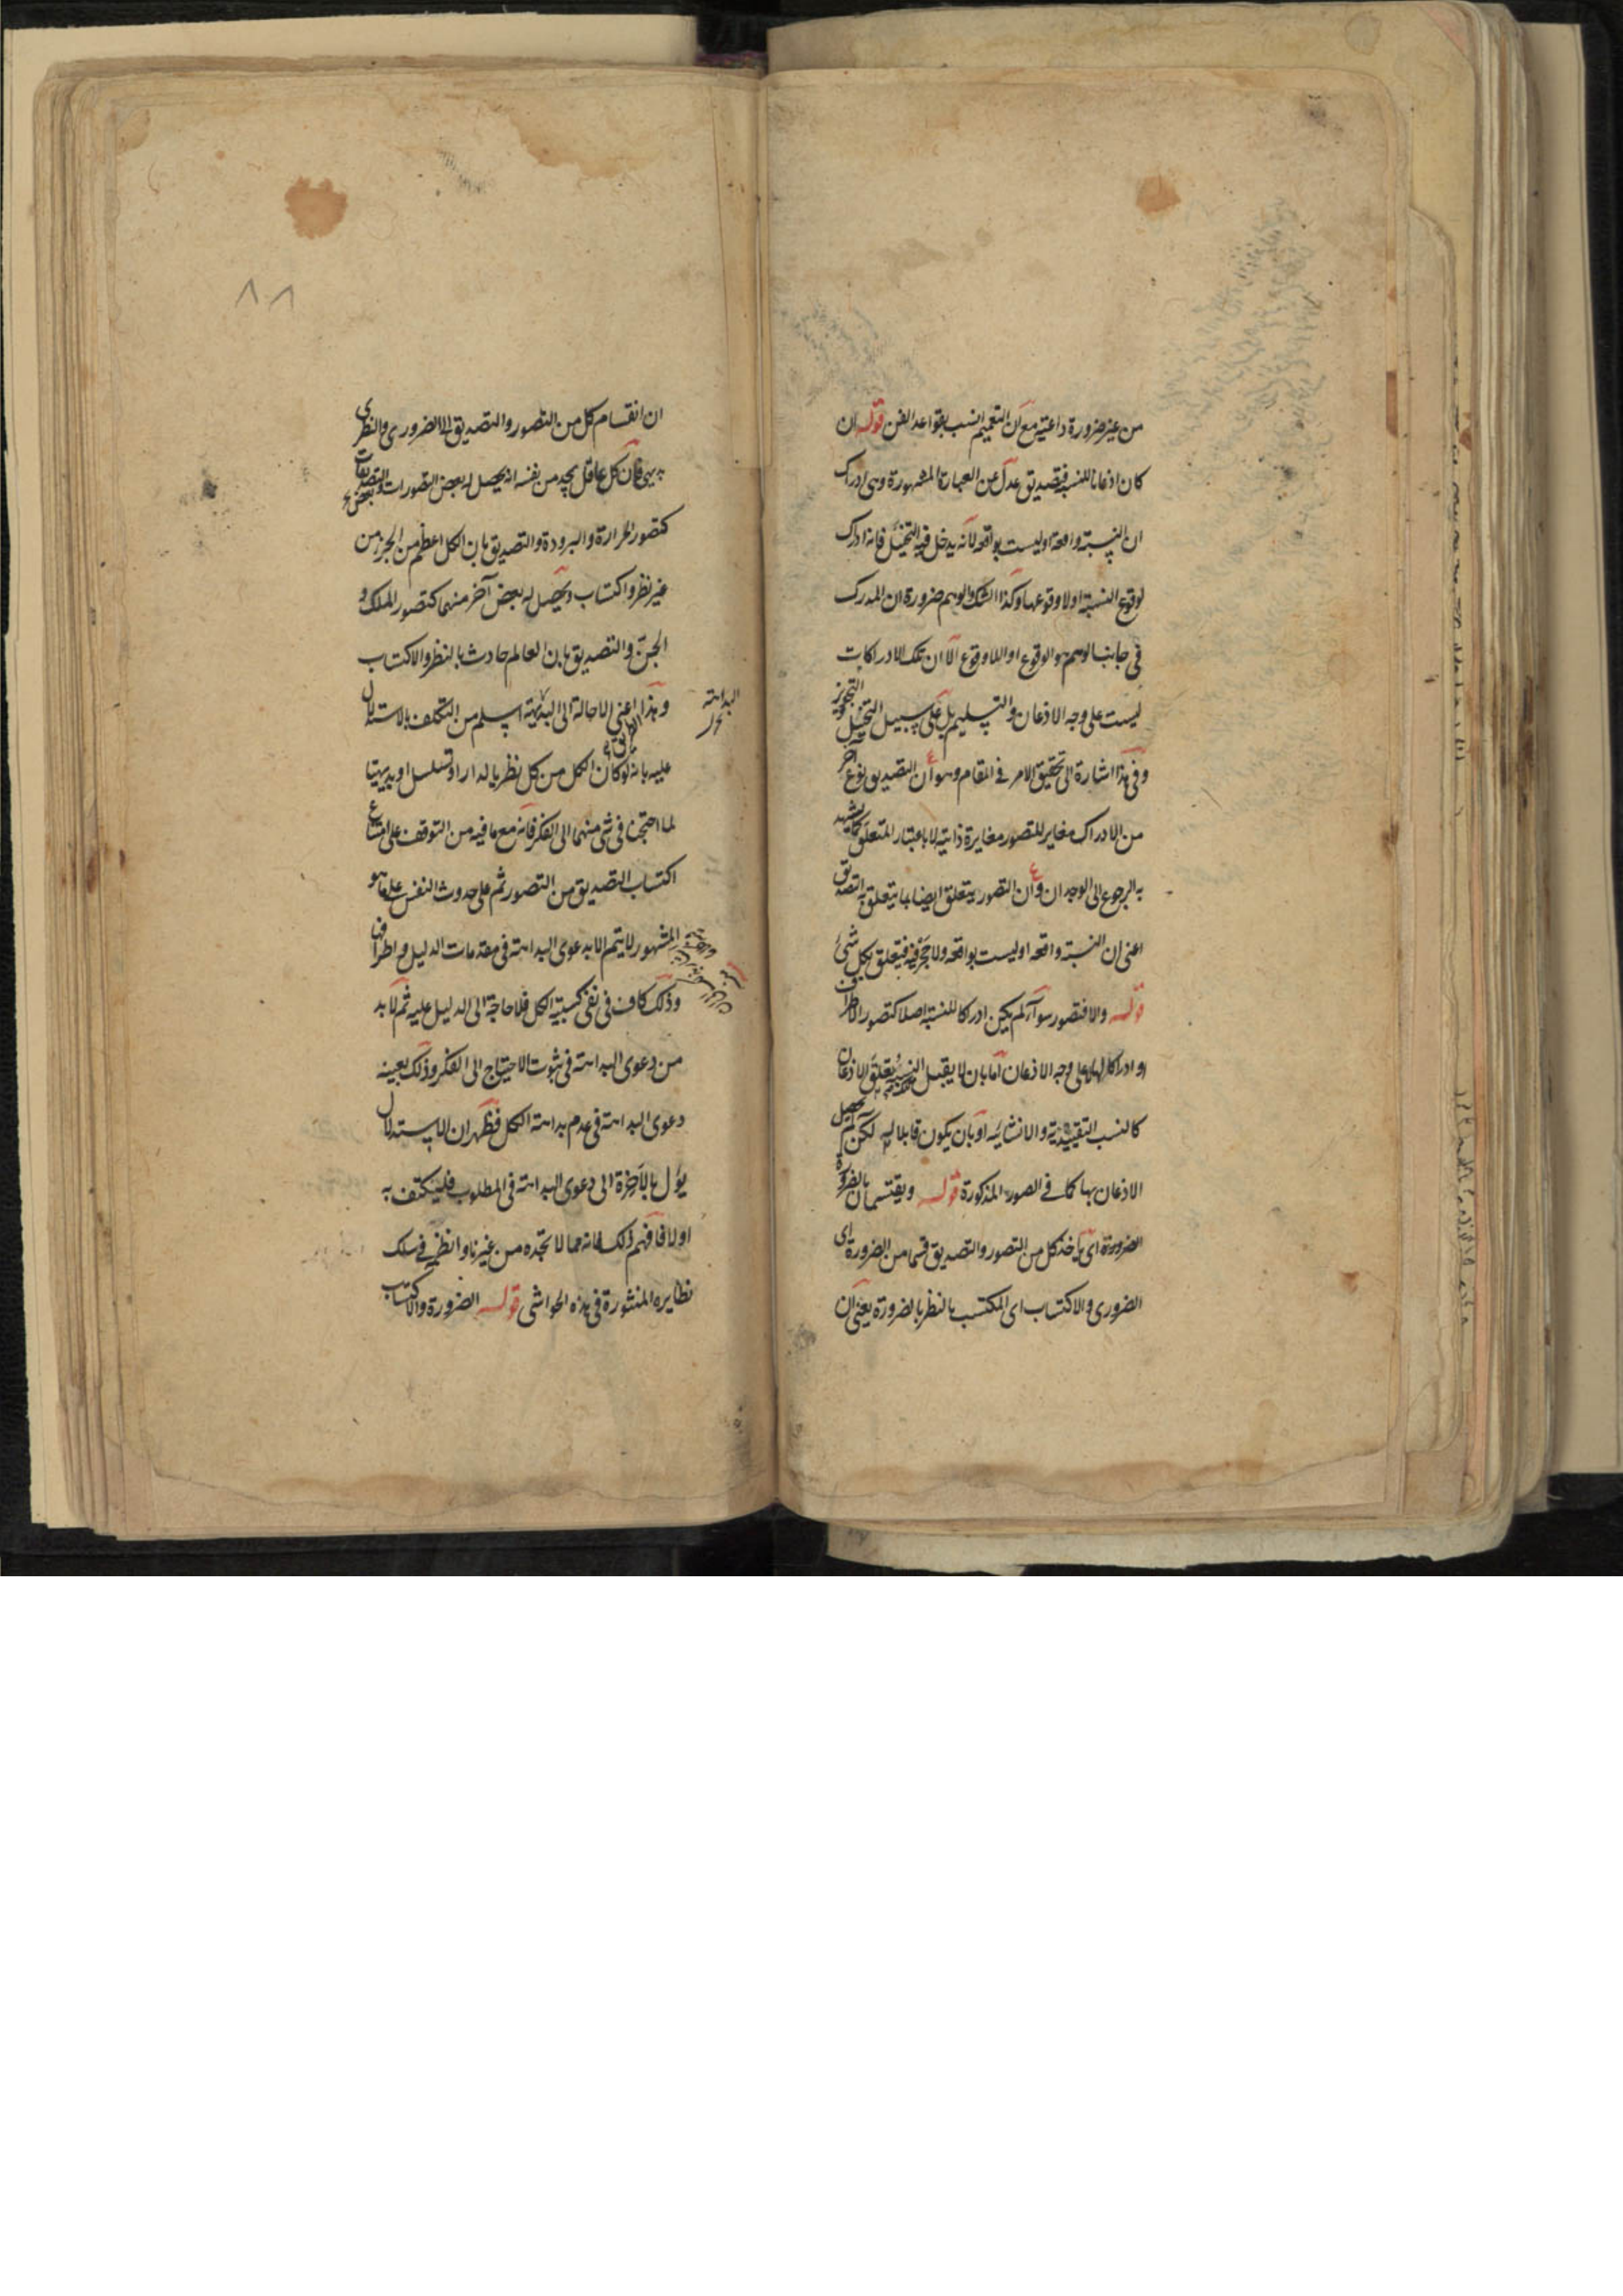 من غير ضرورة داعية مع ان التعميم انسب بقواعد الفن قوله ان
كان اذعانا للنسبة فتصديق عدل عن العبارة المشهورة وهى ادراك
ان النسبة واقعة او ليست بواقعة لانه يدخل فيه التخيل فانه ادراك
لوقوع النسبة او لا وقوعها وكذا الشك والوهم ضرورة ان المدرك
فى جانب الوهم هو الوقوع او اللاوقوع الا ان تلك الادراكات
ليست على وجه الاذعان والتسليم بل على سبيل التخيل والتجويز
وفى هذا اشارة الى تحقيق الامر فى المقام وهو ان التصديق نوع آخر
من الادراك مغاير للتصور مغايرة ذاتية لا باعتبار المتعلق كما يشهد
به الرجوع الى الوجدان وان التصور يتعلق ايضا بما يتعلق به التصديق
اعنى ان النسبة واقعة او ليست بواقعة ولا حجر فيه فيتعلق بكل شئ
قوله والا فتصور سواء لم يكن ادراكا للنسبة اصلا كتصور الاطراف
او ادراكا لها لا على وجه الاذعان اما بان لا يقبل النسبة تعلق الاذعان
كالنسب التقييدية والانشائية او بان يكون قابلا له لكن لم يحصل
الاذعان بها كما فى الصور المذكورة قوله ويقتسمان بالضرورة
الضرورة اى ياخذ كل من التصور والتصديق قسما من الضرورة اى
الضرورى والاكتساب اى المكتسب بالنظر بالضرورة يعنى ان
ان انقسام كل من التصور والتصديق الى الضرورى والنظرى
بديهى فان كل عاقل يجد من نفسه انه يحصل له بعض التصورات وبعض التصديقات
كتصور الحرارة والبرودة والتصديق بان الكل اعظم من الجزء من
غير نظر واكتساب ويحصل له بعض آخر منهما كتصور الملك و
الجن والتصديق بان العالم حادث بالنظر والاكتساب
وهذا اعنى الاحالة الى البديهة اسلم من التكلف بالاستدلال
البداهة
عليه بانه لو كان الكل من كل نظريا لدار او تسلسل او بديهيا
لما احتجنا فى شئ منهما الى الفكر فانه مع ما فيه من التوقف على امتناع
اكتساب التصديق من التصور ثم على حدوث النفس على ما هو
المشهور لا يتم الا بدعوى البداهة فى مقدمات الدليل واطرافها
وذلك كاف فى نفى كسبية الكل فلا حاجة الى الدليل عليه ثم لا بد
من دعوى البداهة فى ثبوت الاحتياج الى الفكر وذلك بعينه
دعوى البداهة فى عدم بداهة الكل فظهر ان الاستدلال
يؤل بالآخرة الى دعوى البداهة فى المطلوب فليكتف به
اولا فافهم ذلك فانه مما لا تجده من غيرنا وانظمه فى سلك
نظايره المنثورة فى هذه الحواشى قوله الضرورة والاكتساب